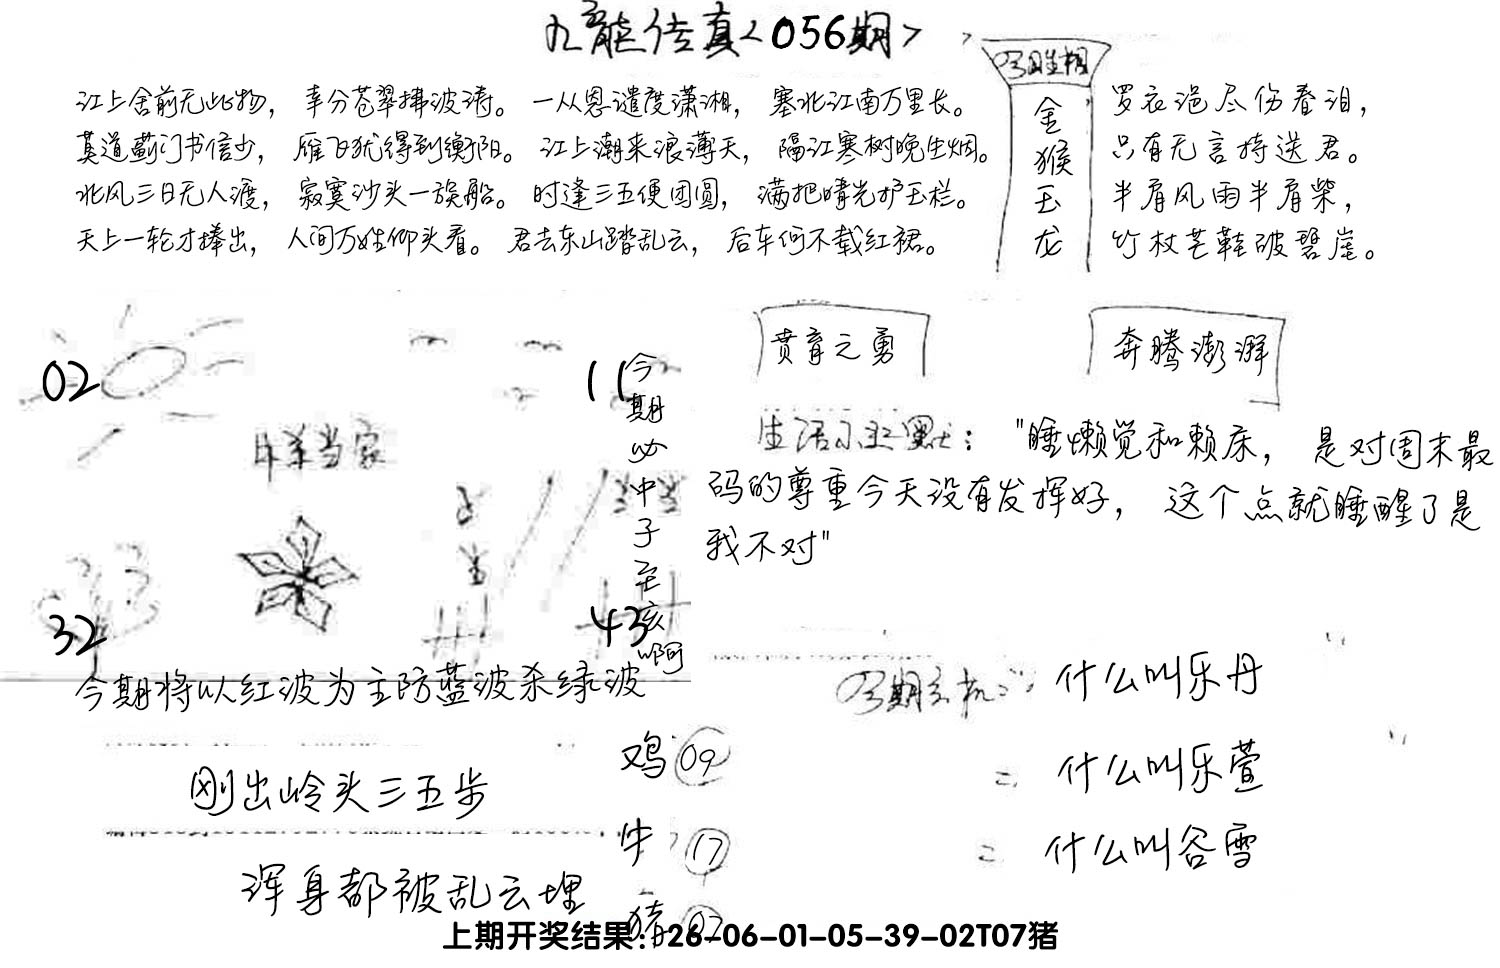 九龙传真<056期>
江上舍前无此物，幸分苍翠拂波涛。一从恩谴度潇湘，塞北江南万里长。
莫道蓟门书信少，雁飞犹得到衡阳。江上潮来浪薄天，隔江寒树晚生烟。
北风三日无人渡，寂寞沙头一簇船。时逢三五便团圆，满把晴光护玉栏。
天上一轮才捧出，人间万姓仰头看。君去东山踏乱云，后车何不载红裙。
金猴玉龙
罗衣浥尽伤春泪，
只有无言持送君。
半肩风雨半肩柴，
竹杖芒鞋破碧崖。
02
11
今期必中子至亥啊
32
43
贲育之勇
奔腾澎湃
生活小幽默："睡懒觉和赖床，是对周末最
码的尊重今天没有发挥好，这个点就睡醒了是
我不对"
今期将以红波为主防蓝波杀绿波
刚出岭头三五步
浑身都被乱云埋
鸡 09
牛 17
猪 02
今期玄机：什么叫乐丹
什么叫乐萱
什么叫谷雪
上期开奖结果：26-06-01-05-39-02T07猪